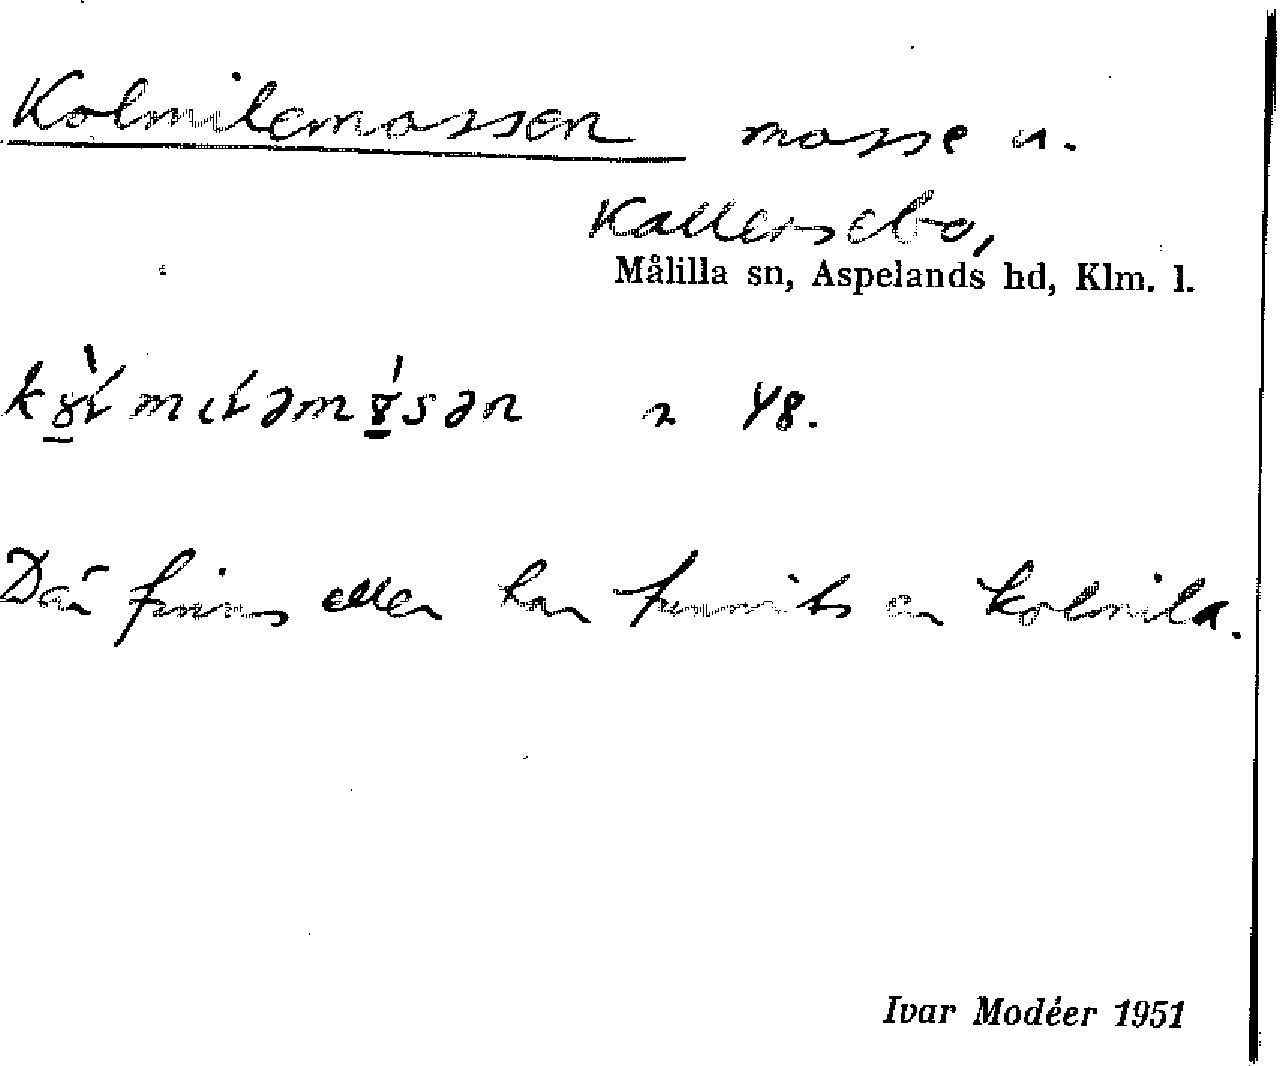 Kolmilemossen mosse u.
Kallersebo,
Målilla sn, Aspelands hd, Klm. l.
48.
Där finns eller har funnits en kolmila.
Ivar Modéer 1951